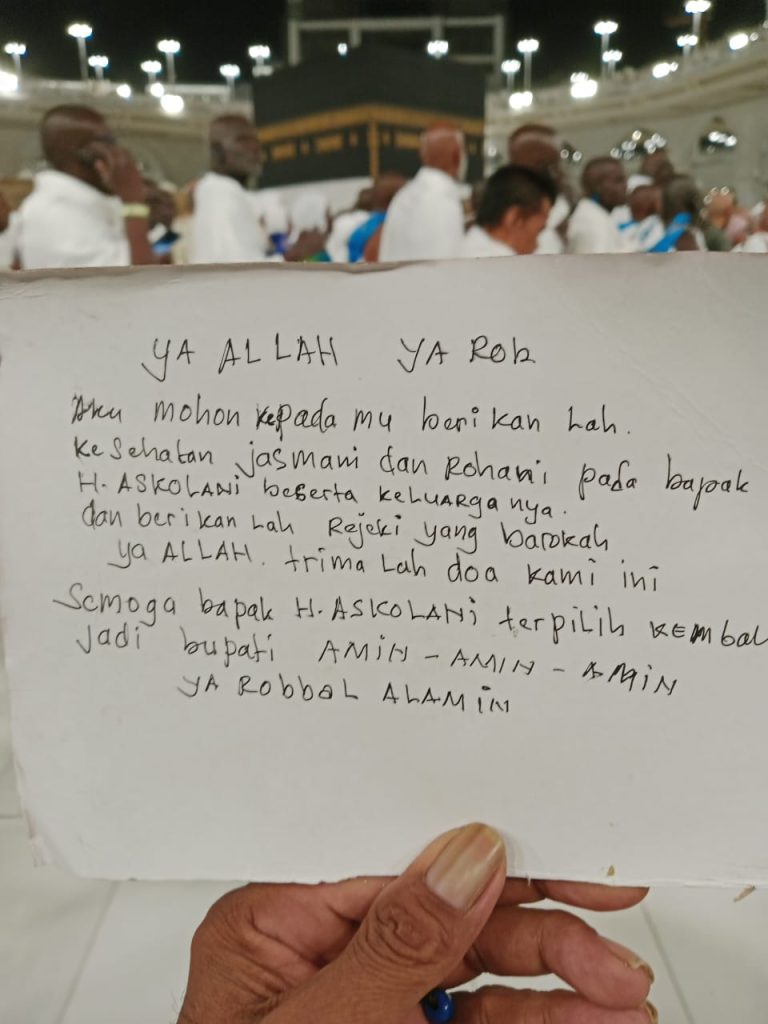 YA ALLAH YA Rob
Aku mohon kepada mu beri kan Lah.
Kesehatan jasmani dan Rohani pada bapak
H. ASKOLANI beserta KELUARGA nya.
dan beri kan Lah Rejeki yang barokah
ya ALLAH. trima Lah doa kami ini
Semoga bapak H. ASKOLANi terpiLih KEmbal
jadi bupati AMiN - AMIN - AMiN
YA RobboL ALAMiN